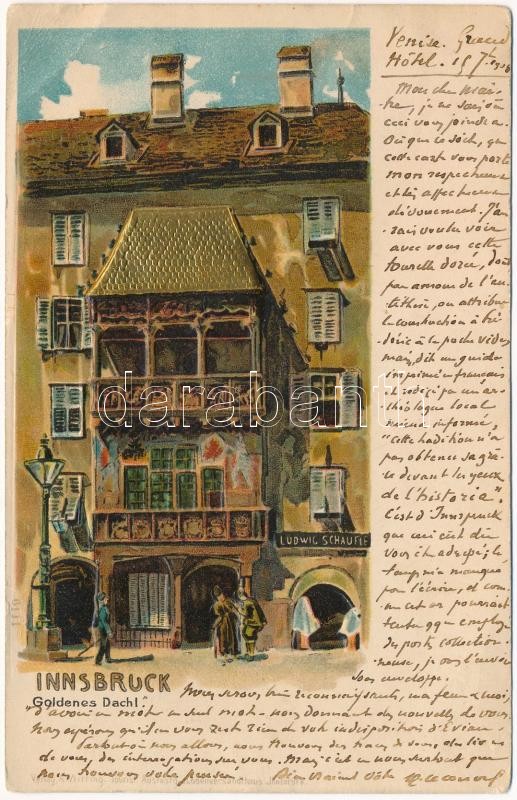 Venise. Grand
Hôtel. 15
Mon cher maî-
tre, je ne sais où
ceci vous joindra.
Où que ce soit, que
cette carte vous porte
mon respectueux
et très affectueux
dévouement. J'au-
rais voulu voir
avec vous cette
tourelle dorée, dont
par amour de l'an-
tithèse, on attribue
la construction à Fré-
déric à la poche vide;
mais, dit un guide
imprimé en français
rédigé par un ar-
chéologue local
mieux informé,
"Cette tradition n'a
pas obtenu sa grâ-
ce devant les yeux
de l'historia".
C'est d'Innspruck
que ceci eût dû
vous être adressé; le
temps m'a manqué
pour l'écrire, et com-
me cet or pourrait
tenter qq employé
des postes collection-
neuse, je vous l'envoie
sous enveloppe.
LUDWIG SCHAUFLE
INNSBRUCK
Goldenes Dachl.
Nous serons, bien reconnaissants, ma femme & moi,
d'avoir un mot - un seul mot - nous donnant des nouvelles de vous.
Nous espérons qu'il ne vous reste rien de votre indisposition d'Evian.
Partout où nous allons, nous trouvons des traces de vous, des livres
de vous, des interrogations sur vous. Mais c'est en nous surtout que
nous trouvons votre pensée. Bien vraiment vôtre
darabanth